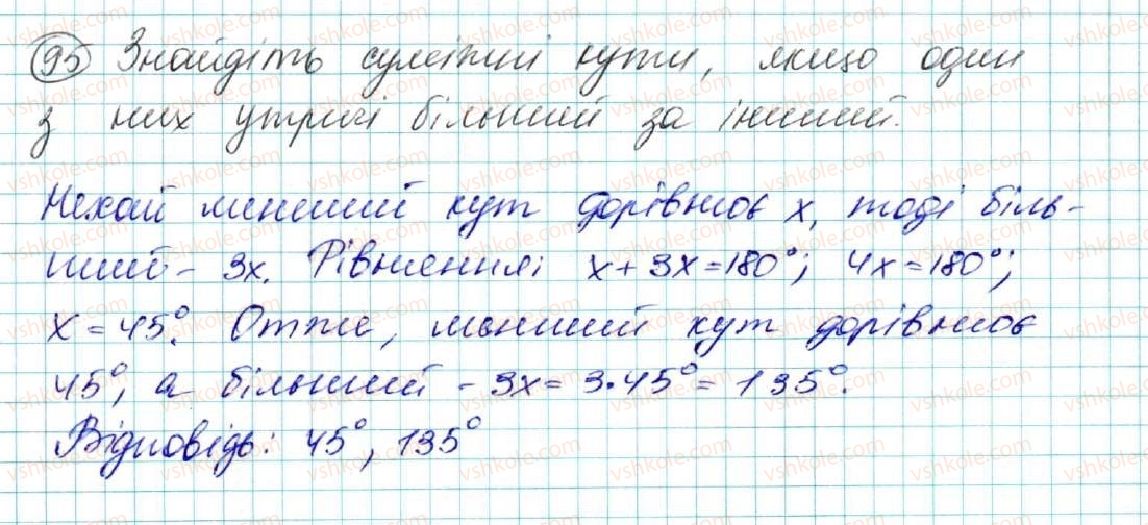 95 Знайдіть суміжні кути, якщо один
з них утричі більший за інший.
Нехай менший кут дорівнює x, тоді біль-
ший - 3x. Рівняння: x + 3x = 180°; 4x = 180°;
x = 45°. Отже, менший кут дорівнює
45°, а більший - 3x = 3·45° = 135°.
Відповідь: 45°, 135°